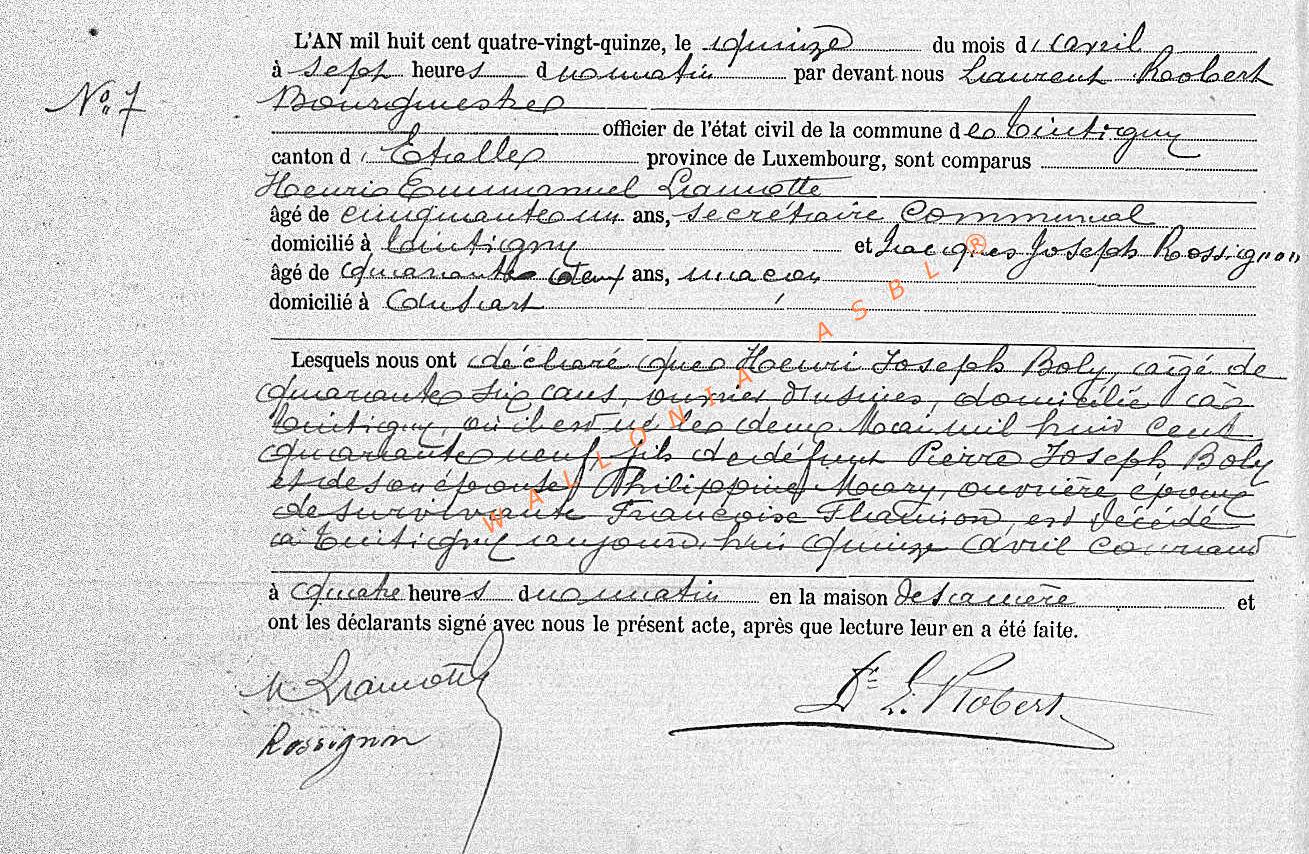 L'AN mil huit cent quatre-vingt-quinze, le quinze du mois d' avril
N° 7
à sept heures du matin par devant nous Laurent Robert
Bourgmestre
officier de l'état civil de la commune de Tintigny
canton d' Etalle province de Luxembourg, sont comparus
Henri Emmanuel Lamotte
âgé de cinquante un ans, secrétaire communal
domicilié à Tintigny et Jacques Joseph Rossignon
âgé de quarante deux ans, maçon
domicilié à
Lesquels nous ont déclaré que Henri Joseph Boly âgé de
quarante six ans, ouvrier d'usines, domicilié à
Tintigny, où il est né le deux Mai mil huit cent
quarante neuf, fils de défunt Pierre Joseph Boly
et de son épouse Philippine Mary, ouvrière époux
de survivante Françoise est décédé
à Tintigny aujourd'hui quinze avril courant
à quatre heures du matin en la maison de sa mère et
ont les déclarants signé avec nous le présent acte, après que lecture leur en a été faite.
Lamotte
Dr L. Robert
Rossignon
WALLONIA ASBL ®